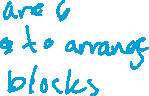 are 6
to arrange
blocks